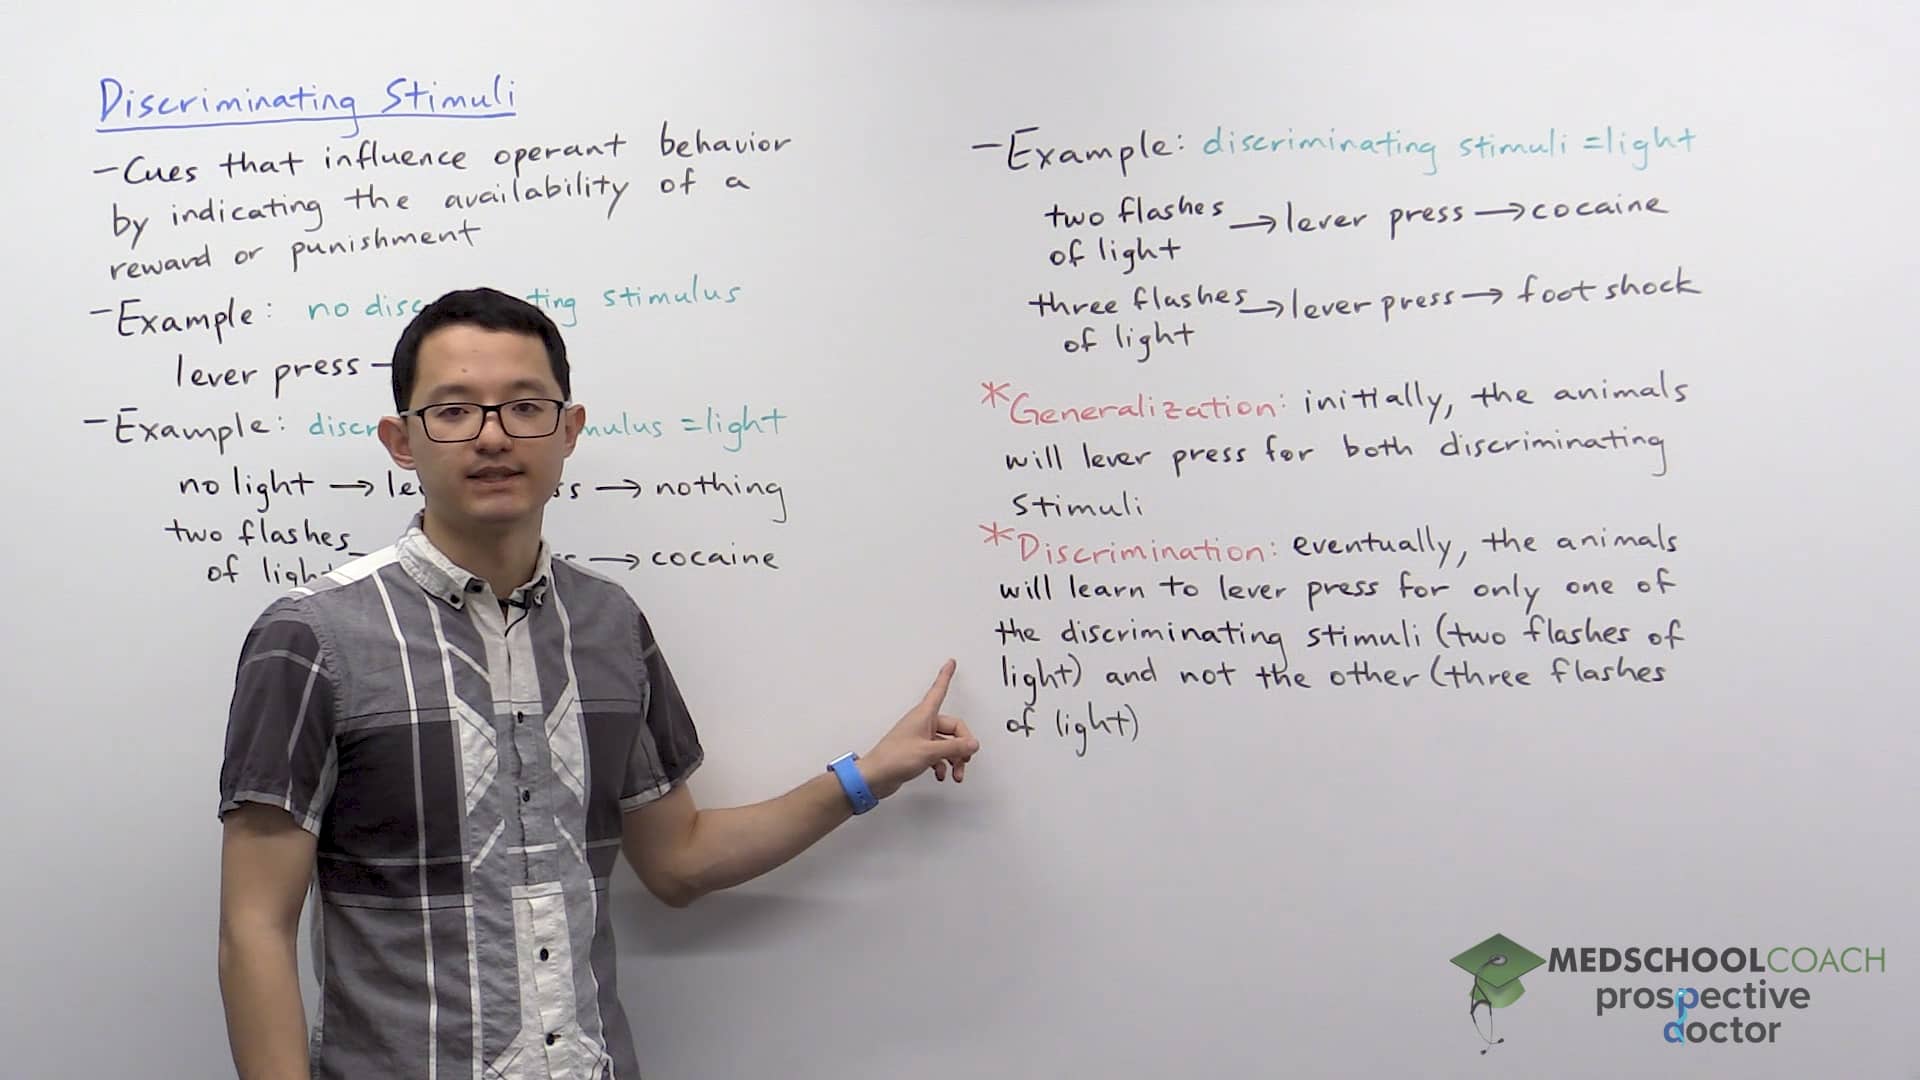 Discriminating Stimuli
-Cues that influence operant behavior
by indicating the availability of a
reward or punishment
-Example: no stimulus
lever press -
-Example: =light
no light → → nothing
two flashes
of → cocaine
-Example: discriminating stimuli =light
two flashes → lever press → cocaine
of light
three flashes → lever press → foot shock
of light
*Generalization: initially, the animals
will lever press for both discriminating
stimuli
*Discrimination: eventually, the animals
will learn to lever press for only one of
the discriminating stimuli (two flashes of
light) and not the other (three flashes
of light)
MEDSCHOOLCOACH
prospective
doctor